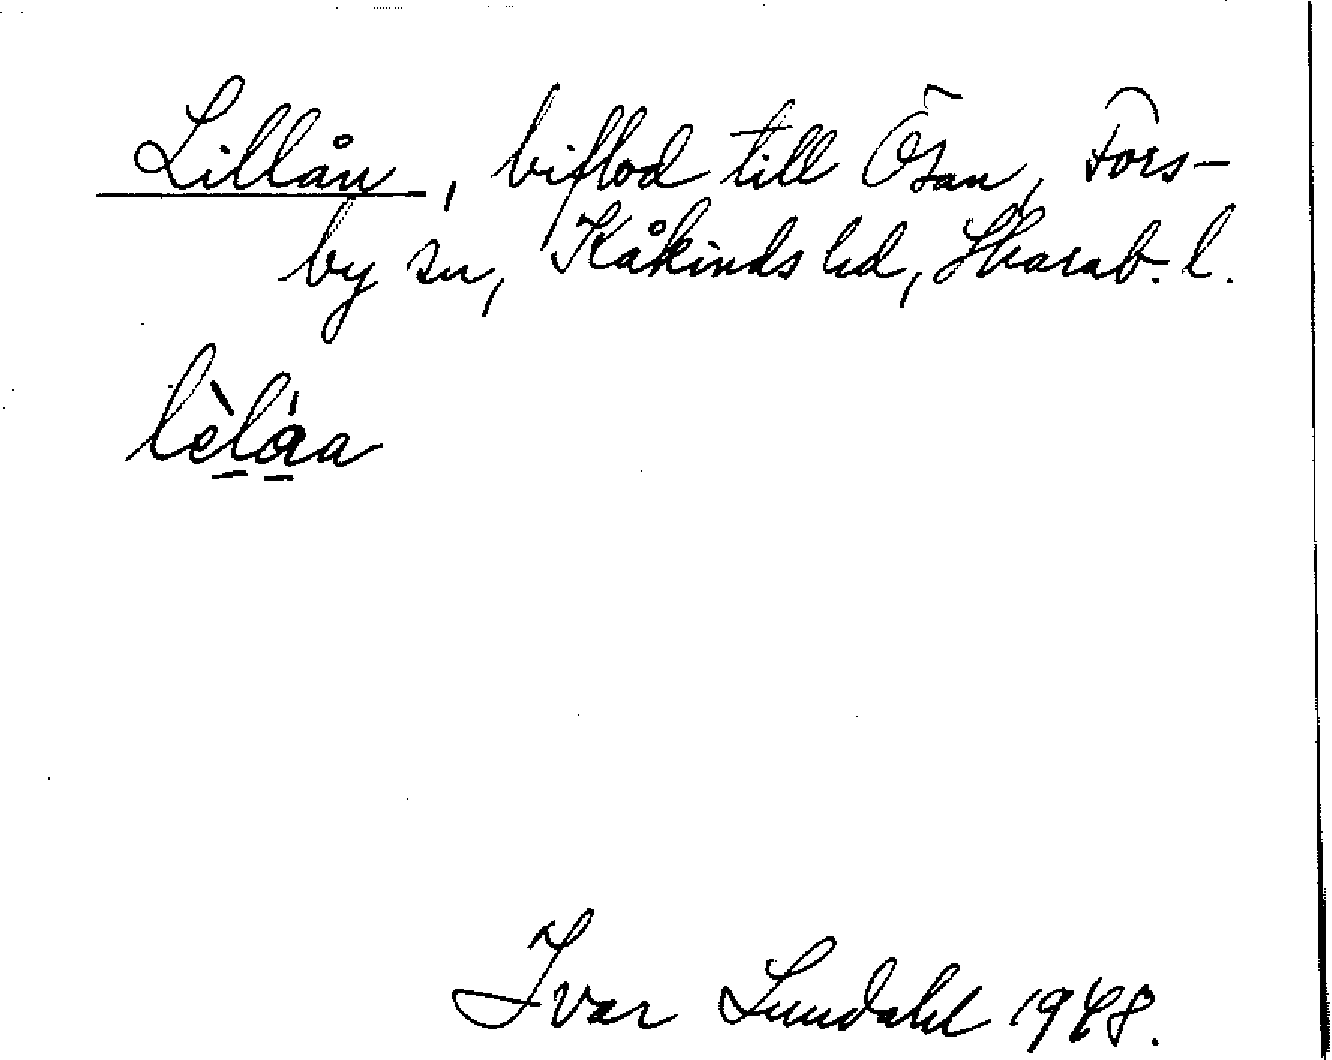 Lillån, biflod till Ösan, Fors-
by sn, Kåkinds hd, Skarab. l.
lèlá̱a
Ivar Lundahl 1948.